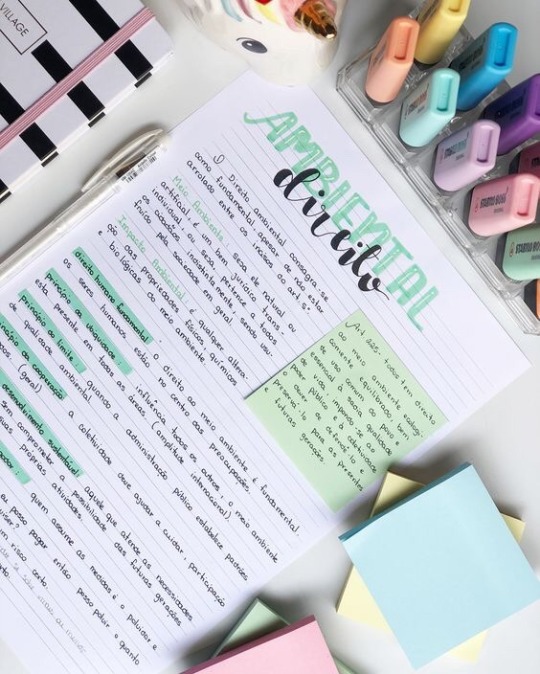 VILLAGE
AMBIENTAL
direito
O Direito ambiental consagra-se
como fundamental, apesar de não estar
arrolado entre os incisos do art. 5º
Meio Ambiente: seja ele natural ou
artificial, é um bem jurídico trans-
individual, ou seja, pertence a todos
os cidadãos indistintamente, sendo usu-
fruído pela sociedade em geral
Impacto Ambiental: é qualquer altera-
ção das propriedades físicos, químicas
e biológicas do meio ambiente.
direito humano fundamental: o direito ao meio ambiente é fundamental.
os seres humanos estão no centro das preocupações.
princípio da ubiquidade: influência todos os outros; o meio ambiente
esta presente em todas as áreas. (amplitude internacional)
princípio do limite: quando a administração pública estabelece padrões
de qualidade ambiental
cooperação: a coletividade deve ajudar a cuidar, participação
(geral)
desenvolvimento sustentável: aquele que atende as necessidades
sem comprometer a possibilidade das futuras gerações
suas próprias atividades.
quem assume as medidas é o poluidor e
eu posso pagar então posso poluir o quanto
quiser?
um risco certo
Art 225: todos tem direito
ao meio ambiente ecologi-
camente equilibrado, bem
de uso comum do povo e
essencial à sadia qualidade
de vida, impondo-se ao
poder público e à coletividade
o dever de defendê-lo e
preservá-lo para as presentes
e futuras gerações.
STABILO BOSS